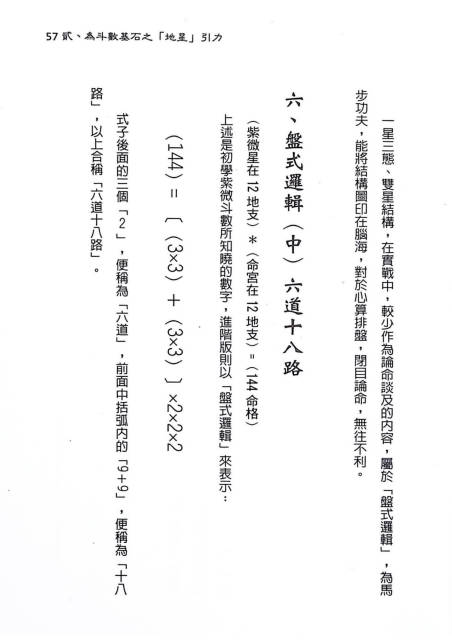 57 貳、為斗數基石之「地星」引力
一星三態、雙星結構，在實戰中，較少作為論命談及的內容，屬於「盤式邏輯」，為馬
步功夫，能將結構圖印在腦海，對於心算排盤，閉目論命，無往不利。
六、盤式邏輯（中）六道十八路
（紫微星在 12 地支）＊（命宮在 12 地支）＝（144 命格）
上述是初學紫微斗數所知曉的數字，進階版則以「盤式邏輯」來表示：
(144) = 〔 (3×3) + (3×3) 〕×2×2×2
式子後面的三個「2」，便稱為「六道」，前面中括弧內的「9+9」，便稱為「十八
路」，以上合稱「六道十八路」。